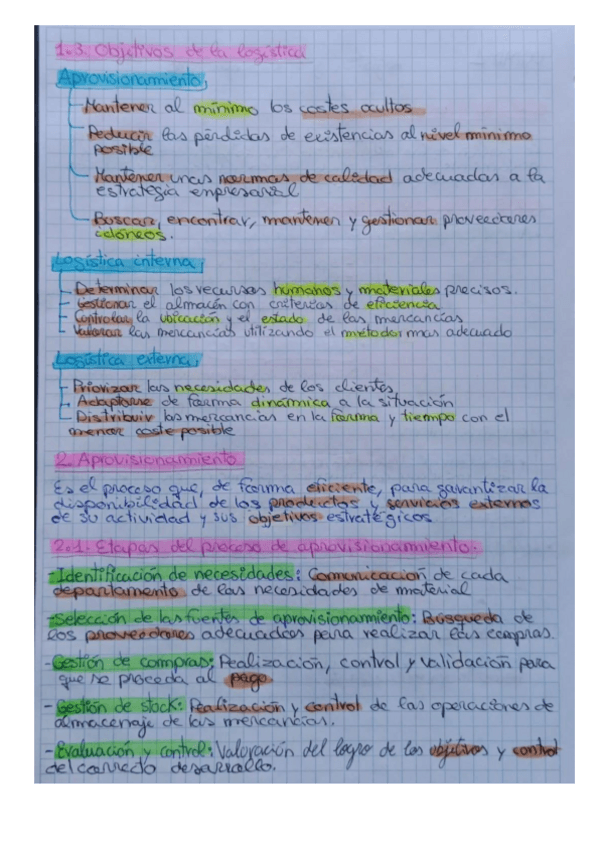 1.3. Objetivos de la logística
Aprovisionamiento
Mantener al mínimo los costes ocultos
Reducir las pérdidas de existencias al nivel mínimo
posible
Mantener unas normas de calidad adecuadas a la
estrategia empresarial
Buscar, encontrar, mantener y gestionar proveedores
idóneos.
Logística interna
- Determinar los recursos humanos y materiales precisos.
- Gestionar el almacén con criterios de eficiencia
- Controlar la ubicación y el estado de las mercancías
- Valorar las mercancías utilizando el método mas adecuado
Logística externa
- Priorizar las necesidades de los clientes
- Adaptarse de forma dinámica a la situación
- Distribuir las mercancías en la forma y tiempo con el
menor coste posible
2. Aprovisionamiento
Es el proceso que, de forma eficiente, para garantizar la
disponibilidad de los productos y servicios externos
de su actividad y sus objetivos estratégicos
2.1. Etapas del proceso de aprovisionamiento.
- Identificación de necesidades: Comunicación de cada
departamento de las necesidades de material
- Selección de las fuentes de aprovisionamiento: Búsqueda de
los proveedores adecuados para realizar las compras.
- Gestión de compras: Realización, control y validación para
que se proceda al pago
- Gestión de stock: Realización y control de las operaciones de
almacenaje de las mercancías.
- Evaluación y control: Valoración del logro de los objetivos y control
del correcto desarrollo.